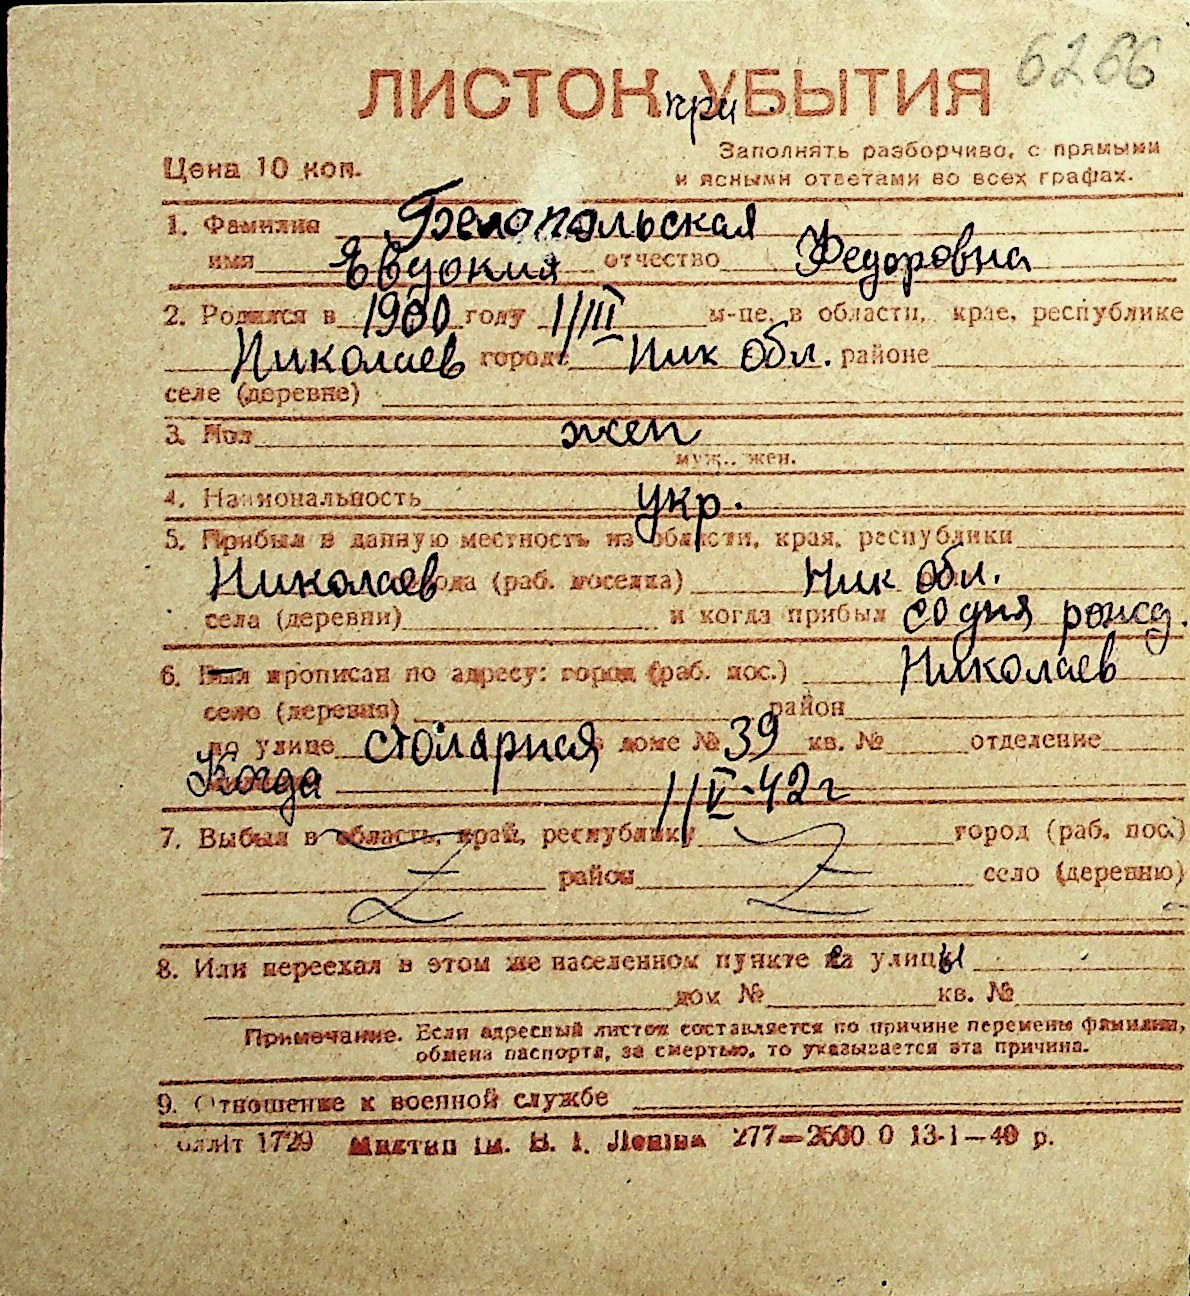 6266
ЛИСТОК УБЫТИЯ
при
Цена 10 коп.
Заполнять разборчиво, с прямыми
и ясными ответами во всех графах.
1. Фамилия Белопольская
имя Явдокия отчество Федоровна
2. Родился в 1900 году 1/III м-це, в области, крае, республике
Николаев городе Ник обл. районе
селе (деревне)
3. Пол жен
муж., жен.
4. Национальность укр.
5. Прибыл в данную местность из области, края, республики
Николаев города (раб. поселка) Ник обл.
села (деревни) и когда прибыл со дня рожд.
6. Был прописан по адресу: город (раб. пос.) Николаев
село (деревня) район
по улице столярная в доме № 39 кв. № отделение
Когда 1/V-42 г
7. Выбыл в область, край, республику город (раб. пос.)
район село (деревню)
8. Или переехал в этом же населенном пункте на улицы
дом № кв. №
Примечание. Если адресный листок составляется по причине перемены фамилии,
обмена паспорта, за смертью, то указывается эта причина.
9. Отношение к военной службе
1729 Миктип ім. В. І. Леніна 277—2500 0 13-1—40 р.